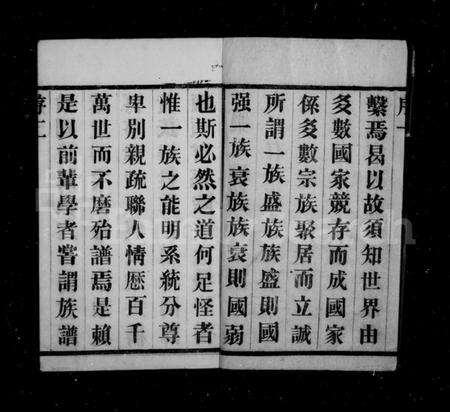 序一
繫焉曷以故須知世界由
多數國家競存而成國家
係多數宗族聚居而立誠
所謂一族盛族族盛則國
强一族衰族族衰則國弱
也斯必然之道何足怪者
惟一族之能明系統分尊
卑別親疏聯人情歷百千
萬世而不磨殆譜焉是賴
是以前輩學者嘗謂族譜
序二